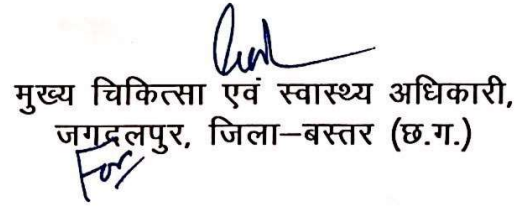 मुख्य चिकित्सा एवं स्वास्थ्य अधिकारी,
जगदलपुर, जिला–बस्तर (छ.ग.)
For